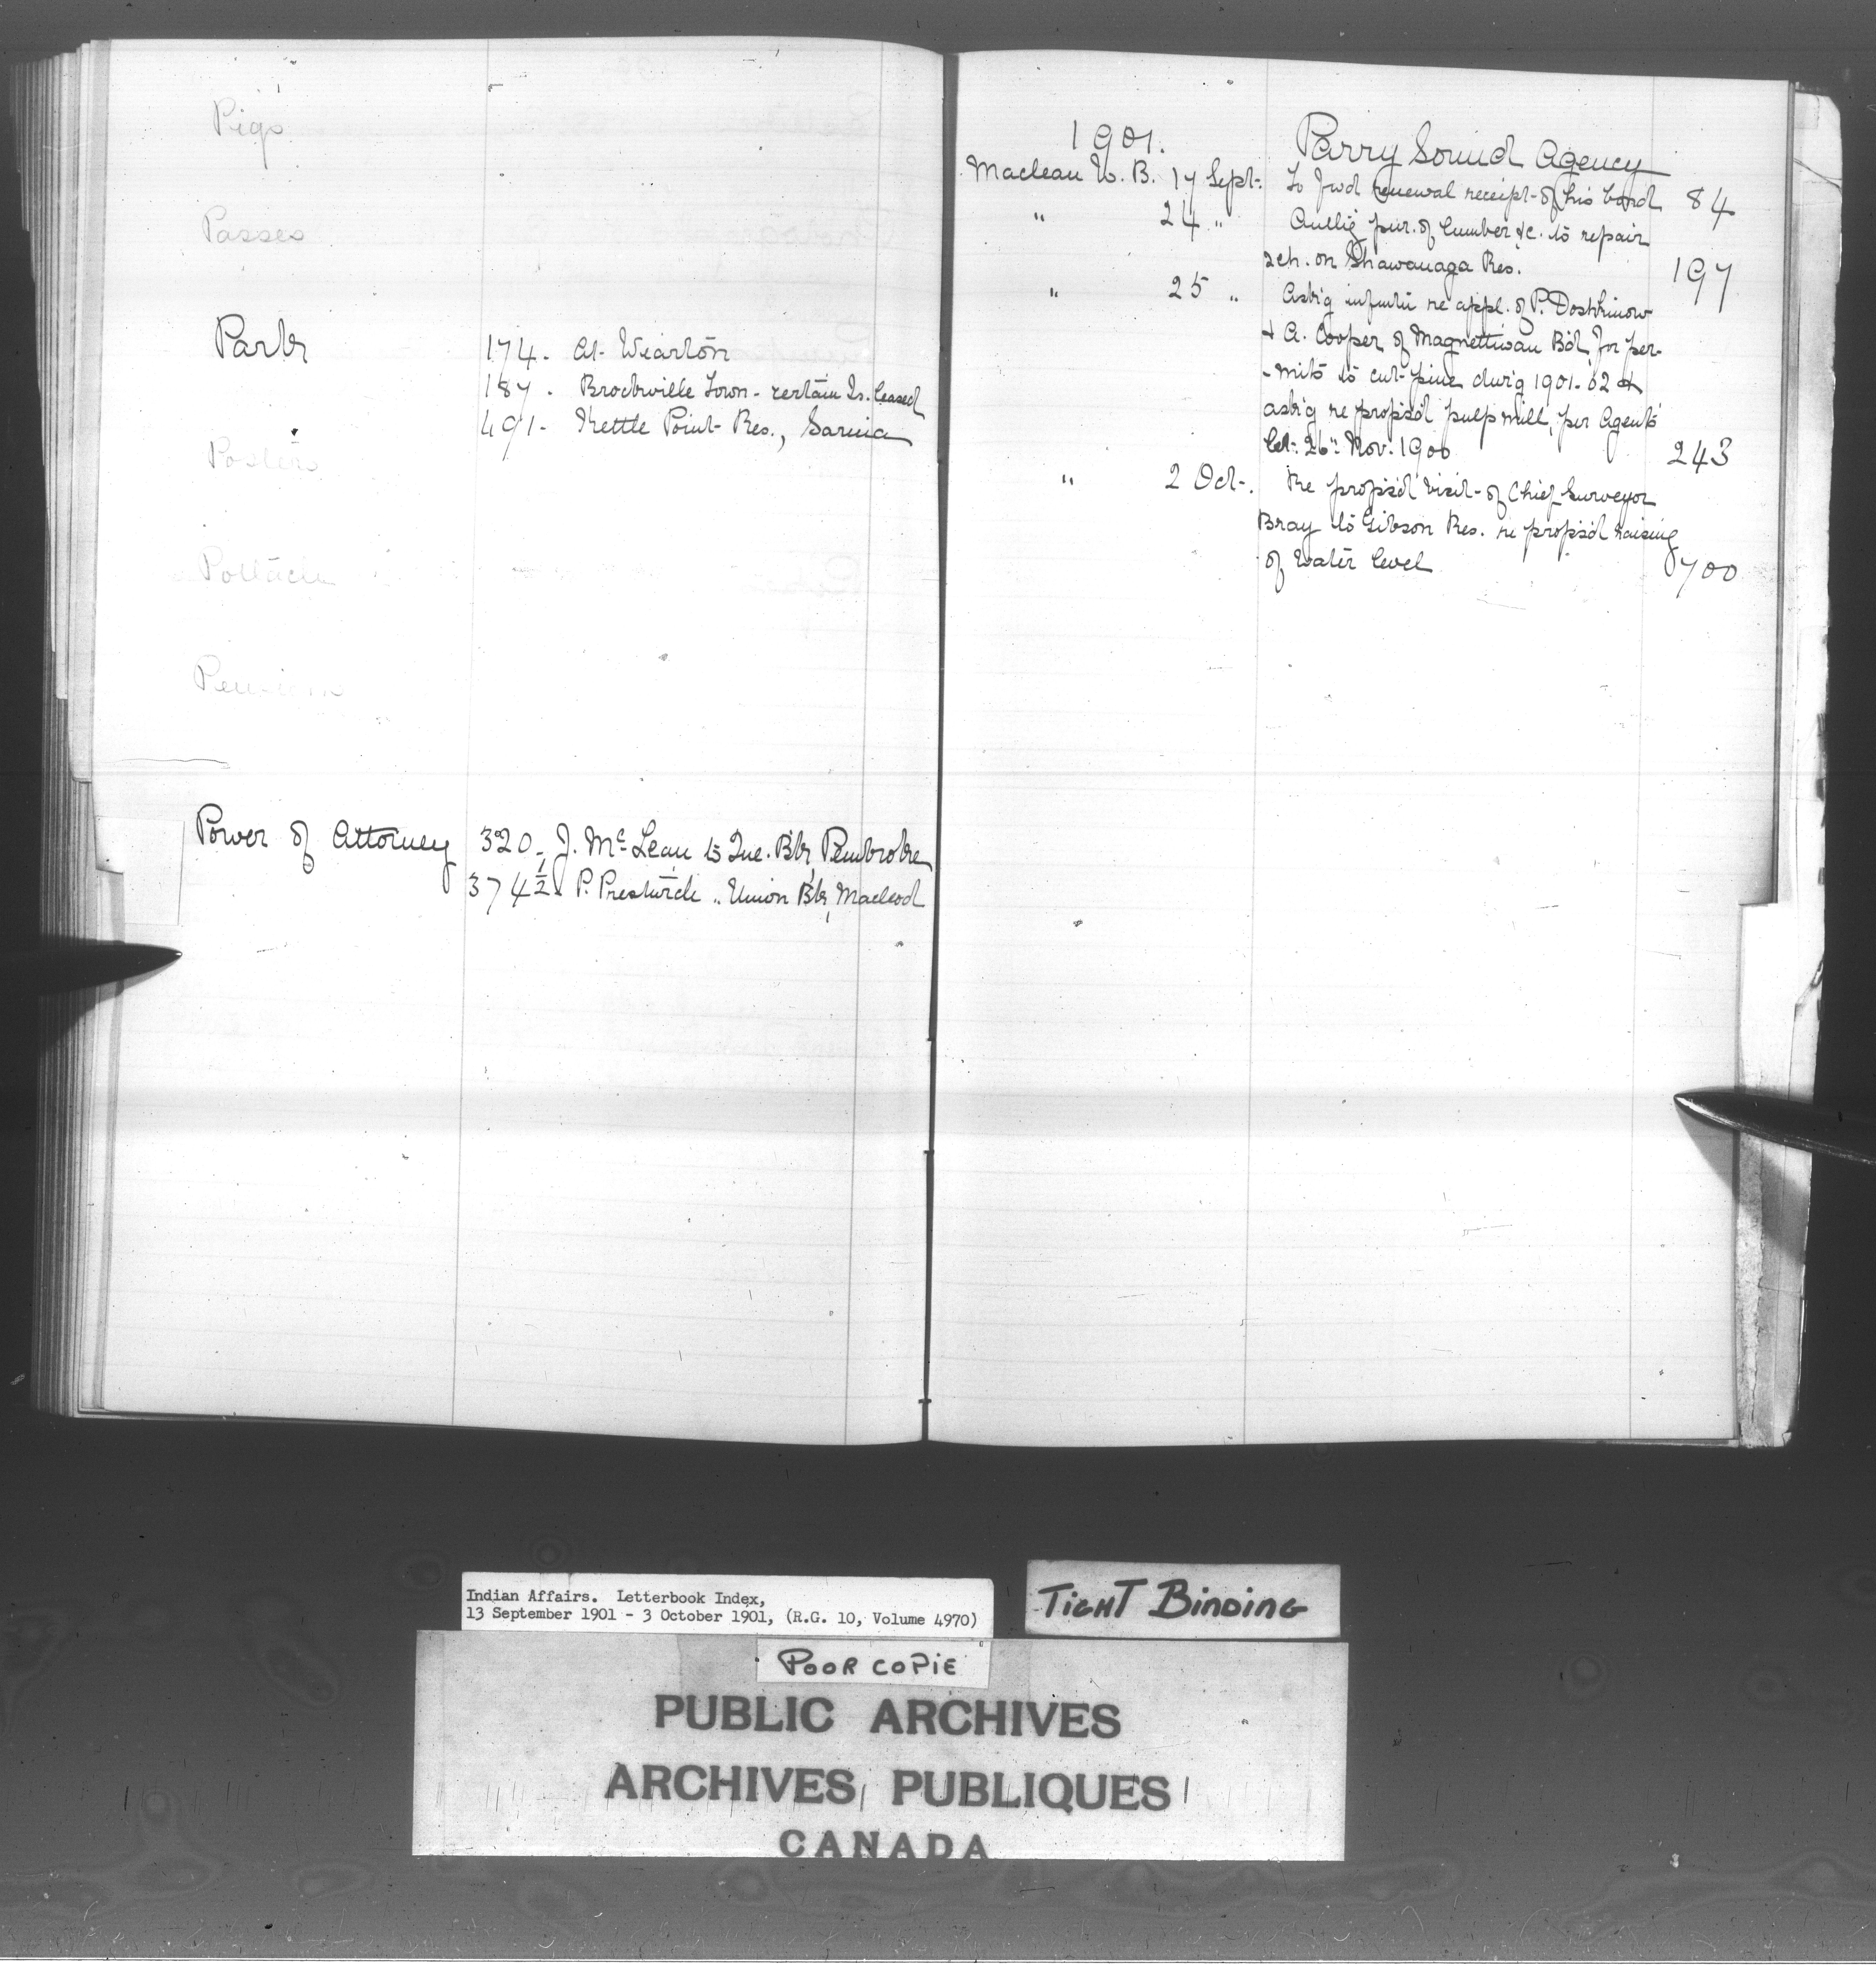 Pigs
Passes
Park
174 - At Wiarton
187 - Brockville Town - certain Is. leased
491 - Kettle Point Res., Sarnia
Posters
Potlach
Pensions
Power of Attorney
320 - J. McLean to Que. Bk, Pembroke
374½ - P. Prestwich " Union Bk, Macleod
1901.
Parry Sound Agency
Maclean W. B. 17 Sept. To fwd renewal receipt of his bond 84
" 24 " Auth'g pur. of lumber &c. to repair
sch. on Shawanaga Res. 197
" 25 " Ask'g inform re appl. of P.
& A. Cooper of Magnettiwan B'd, for per-
-mits to cut pine dur'g 1901-02 &
ask'g re propos'd pulp mill, per Agent's
let. 26" Nov. 1900 243
" 2 Oct. Re propos'd visit of Chief Surveyor
Bray to Gibson Res. re propos'd raising
of water level 700
Indian Affairs. Letterbook Index,
13 September 1901 - 3 October 1901, (R.G. 10, Volume 4970)
TIGHT BINDING
POOR COPIE
PUBLIC ARCHIVES
ARCHIVES PUBLIQUES
CANADA